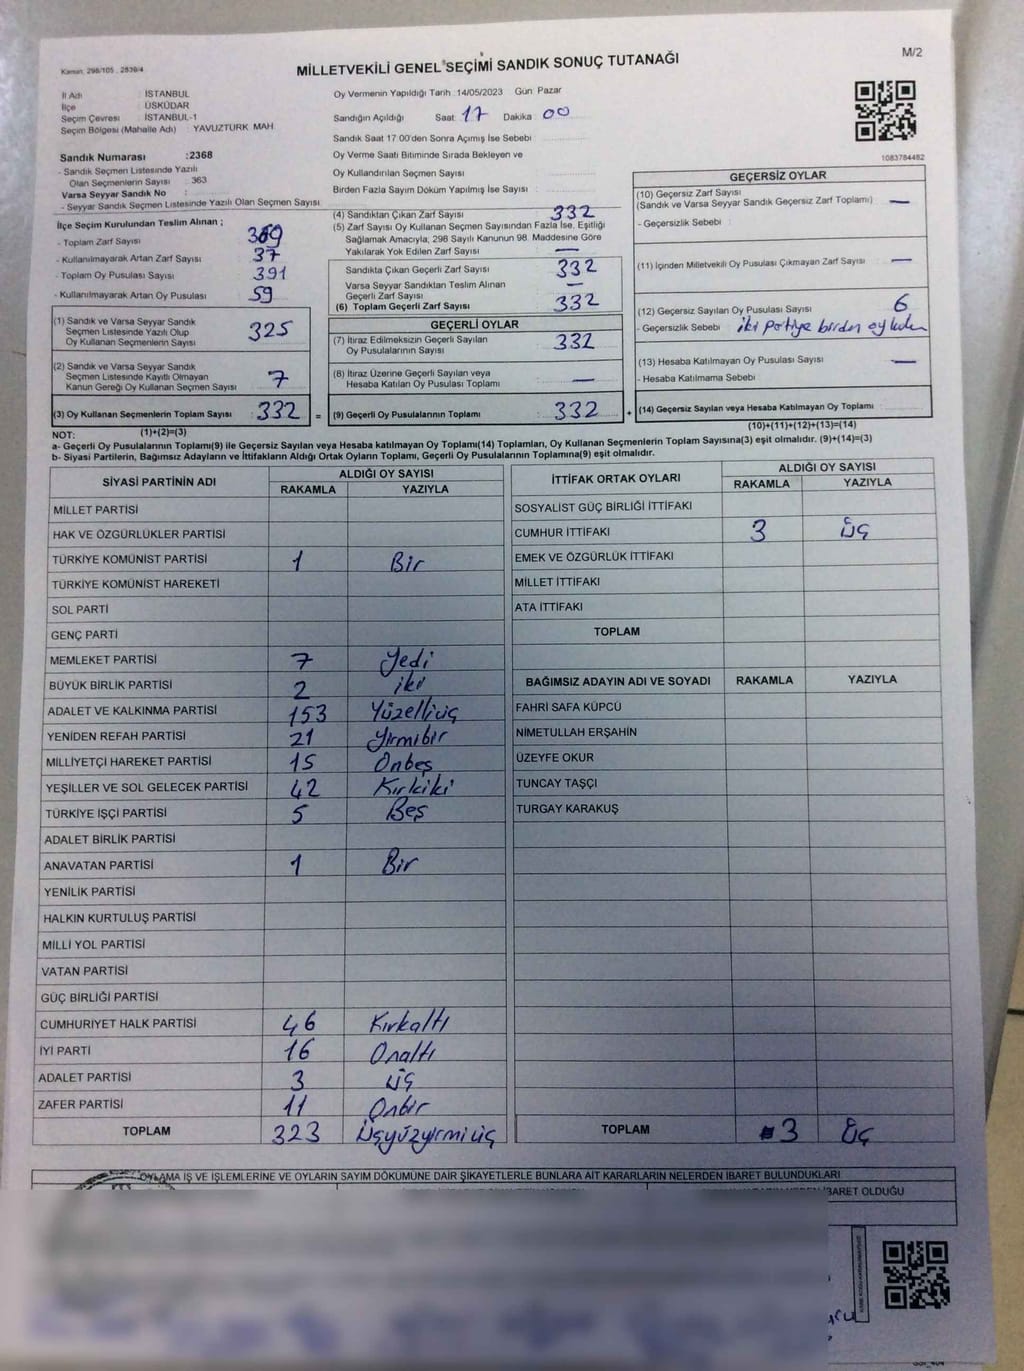 M/2
Kanun: 298/105, 2839/4
MİLLETVEKİLİ GENEL SEÇİMİ SANDIK SONUÇ TUTANAĞI
İl Adı : İSTANBUL
İlçe : ÜSKÜDAR
Seçim Çevresi : İSTANBUL-1
Seçim Bölgesi (Mahalle Adı) : YAVUZTÜRK MAH.
Oy Vermenin Yapıldığı Tarih :14/05/2023 Gün: Pazar
Sandığın Açıldığı Saat: 17 Dakika: 00
Sandık Saat 17.00'den Sonra Açılmış İse Sebebi :
Oy Verme Saati Bitiminde Sırada Bekleyen ve
Oy Kullandırılan Seçmen Sayısı :
Birden Fazla Sayım Döküm Yapılmış İse Sayısı :
1083784482
Sandık Numarası :2368
- Sandık Seçmen Listesinde Yazılı
Olan Seçmenlerin Sayısı : 363
Varsa Seyyar Sandık No :
- Seyyar Sandık Seçmen Listesinde Yazılı Olan Seçmen Sayısı :
İlçe Seçim Kurulundan Teslim Alınan ;
- Toplam Zarf Sayısı : 369
- Kullanılmayarak Artan Zarf Sayısı : 37
- Toplam Oy Pusulası Sayısı : 391
- Kullanılmayarak Artan Oy Pusulası : 59
(1) Sandık ve Varsa Seyyar Sandık
Seçmen Listesinde Yazılı Olup
Oy Kullanan Seçmenlerin Sayısı : 325
(2) Sandık ve Varsa Seyyar Sandık
Seçmen Listesinde Kayıtlı Olmayan
Kanun Gereği Oy Kullanan Seçmen Sayısı : 7
(3) Oy Kullanan Seçmenlerin Toplam Sayısı : 332 =
(1)+(2)=(3)
(4) Sandıktan Çıkan Zarf Sayısı : 332
(5) Zarf Sayısı Oy Kullanan Seçmen Sayısından Fazla İse, Eşitliği
Sağlamak Amacıyla, 298 Sayılı Kanunun 98. Maddesine Göre
Yakılarak Yok Edilen Zarf Sayısı : —
Sandıkta Çıkan Geçerli Zarf Sayısı : 332
Varsa Seyyar Sandıktan Teslim Alınan
Geçerli Zarf Sayısı : —
(6) Toplam Geçerli Zarf Sayısı : 332
GEÇERLİ OYLAR
(7) İtiraz Edilmeksizin Geçerli Sayılan
Oy Pusulalarının Sayısı : 332
(8) İtiraz Üzerine Geçerli Sayılan veya
Hesaba Katılan Oy Pusulası Toplamı : —
(9) Geçerli Oy Pusulalarının Toplamı : 332 +
GEÇERSİZ OYLAR
(10) Geçersiz Zarf Sayısı
(Sandık ve Varsa Seyyar Sandık Geçersiz Zarf Toplamı) : —
- Geçersizlik Sebebi :
(11) İçinden Milletvekili Oy Pusulası Çıkmayan Zarf Sayısı : —
(12) Geçersiz Sayılan Oy Pusulası Sayısı : 6
- Geçersizlik Sebebi : iki partiye birden oy
(13) Hesaba Katılmayan Oy Pusulası Sayısı : —
- Hesaba Katılmama Sebebi :
(14) Geçersiz Sayılan veya Hesaba Katılmayan Oy Toplamı :
(10)+(11)+(12)+(13)=(14)
NOT:
a- Geçerli Oy Pusulaları Toplamı(9) ile Geçersiz Sayılan veya Hesaba katılmayan Oy Toplamı(14) Toplamları, Oy Kullanan Seçmenlerin Toplam Sayısına(3) eşit olmalıdır. (9)+(14)=(3)
b- Siyasi Partilerin, Bağımsız Adayların ve İttifakların Aldığı Ortak Oyların Toplamı, Geçerli Oy Pusulalarının Toplamına(9) eşit olmalıdır.
SİYASİ PARTİNİN ADI ALDIĞI OY SAYISI
RAKAMLA YAZIYLA
MİLLET PARTİSİ
HAK VE ÖZGÜRLÜKLER PARTİSİ
TÜRKİYE KOMÜNİST PARTİSİ 1 Bir
TÜRKİYE KOMÜNİST HAREKETİ
SOL PARTİ
GENÇ PARTİ
MEMLEKET PARTİSİ 7 Yedi
BÜYÜK BİRLİK PARTİSİ 2 iki
ADALET VE KALKINMA PARTİSİ 153 Yüzelliüç
YENİDEN REFAH PARTİSİ 21 Yirmibir
MİLLİYETÇİ HAREKET PARTİSİ 15 Onbeş
YEŞİLLER VE SOL GELECEK PARTİSİ 42 Kırkiki
TÜRKİYE İŞÇİ PARTİSİ 5 Beş
ADALET BİRLİK PARTİSİ
ANAVATAN PARTİSİ 1 Bir
YENİLİK PARTİSİ
HALKIN KURTULUŞ PARTİSİ
MİLLİ YOL PARTİSİ
VATAN PARTİSİ
GÜÇ BİRLİĞİ PARTİSİ
CUMHURİYET HALK PARTİSİ 46 Kırkaltı
İYİ PARTİ 16 Onaltı
ADALET PARTİSİ 3 üç
ZAFER PARTİSİ 11 Onbir
TOPLAM 323 Üçyüzyirmiüç
İTTİFAK ORTAK OYLARI ALDIĞI OY SAYISI
RAKAMLA YAZIYLA
SOSYALİST GÜÇ BİRLİĞİ İTTİFAKI
CUMHUR İTTİFAKI 3 Üç
EMEK VE ÖZGÜRLÜK İTTİFAKI
MİLLET İTTİFAKI
ATA İTTİFAKI
TOPLAM
BAĞIMSIZ ADAYIN ADI VE SOYADI RAKAMLA YAZIYLA
FAHRİ SAFA KÜPCÜ
NİMETULLAH ERŞAHİN
ÜZEYFE OKUR
TUNCAY TAŞÇI
TURGAY KARAKUŞ
TOPLAM 3 Üç
OYLAMA İŞ VE İŞLEMLERİNE VE OYLARIN SAYIM DÖKÜMÜNE DAİR ŞİKAYETLERLE BUNLARA AİT KARARLARIN NELERDEN İBARET BULUNDUKLARI
İBARET OLDUĞU